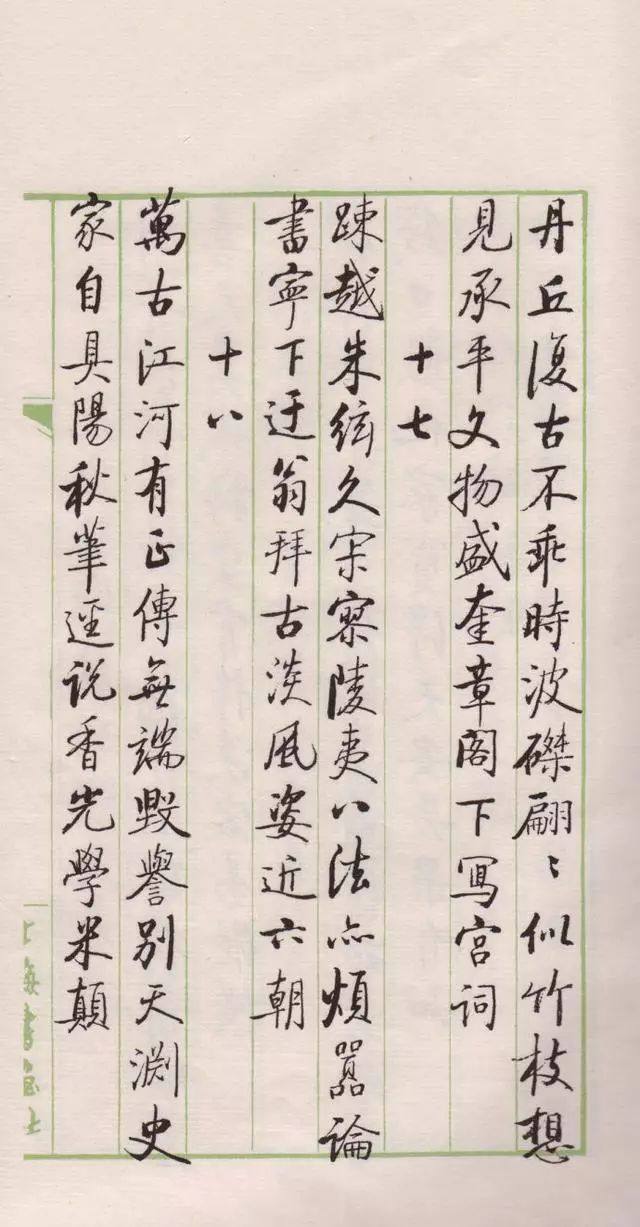 丹丘復古不乖時波磔翩〻似竹枝想
見承平文物盛奎章閣下寫宮詞
十七
踈越朱絃久寂寥陵夷八法亦煩囂論
書寧下迂翁拜古淡風姿近六朝
十八
萬古江河有正傳無端毀譽別天淵史
家自具陽秋筆逕説香光學米顛